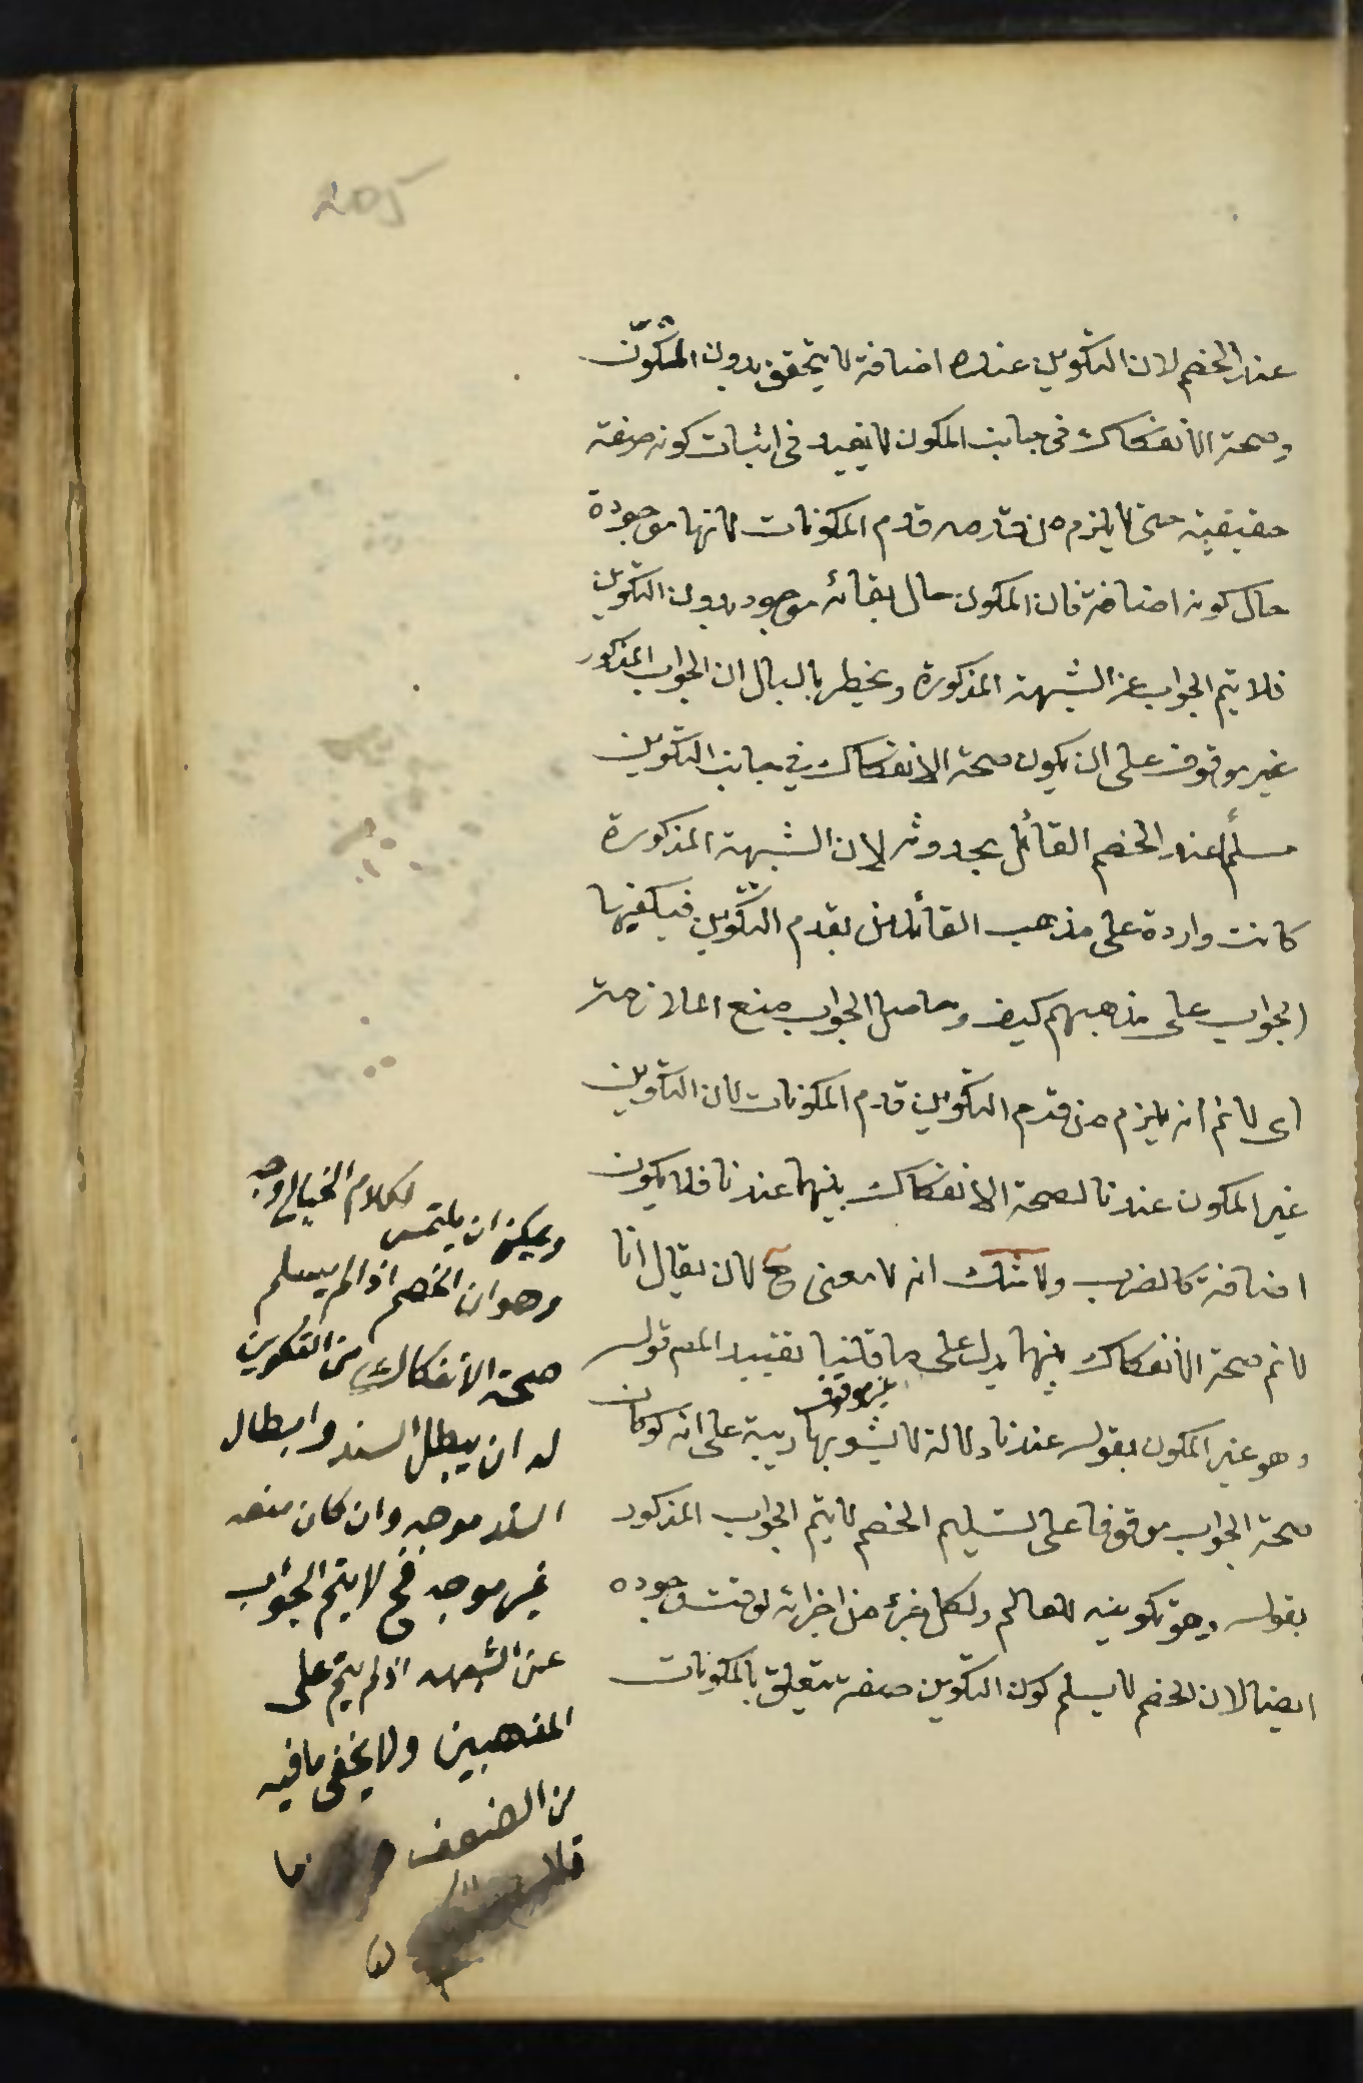 205
عند الخصم لان التكوين عنده اضافة لا يتحقق بدون المكوّن
وصحة الانفكاك في جانب المكون لا يفيد في اثبات كونه صفة
حقيقية حتى لا يلزم من قدمه قدم المكونات لانها موجودة
حال كونه اضافة فان المكون حال بقائه موجود بدون التكوين
فلا يتم الجواب عن الشبهة المذكورة ويخطر بالبال ان الجواب المذكور
غير موقوف على ان يكون صحة الانفكاك في جانب التكوين
مسلّما عند الخصم القائل بحدوثه لان الشبهة المذكورة
كانت واردة على مذهب القائلين بقدم التكوين فيكفيها
الجواب على مذهبهم كيف وحاصل الجواب منع الملازمة
اى لا نم انه يلزم من قدم التكوين قدم المكونات لان التكوين
غير المكون عندنا لصحة الانفكاك بينهما عندنا فلا يكون
اضافة كالضرب ولا شك انه لا معنى ح لان يقال انا
لا نم صحة الانفكاك بينهما يدل على ما قلنا تقييد المص قوله
وهو غير المكون بقوله عندنا دلالة لا يشوبها ريبة على انه لو كان
صحة الجواب موقوفا على تسليم الخصم لا يتم الجواب المذكور
بقوله وهو تكوينه للعالم ولكل جزء من اجزائه لوقت وجوده
ايضا لان الخصم لا يسلم كون التكوين صفة تتعلق بالمكونات
ويمكن ان يلتمس لكلام الخيالي وجه
وهو ان الخصم اذا لم يسلم
صحة الانفكاك من التكوين
له ان يبطل السند وابطال
السند موجه وان كان منعه
غير موجه فح لا يتم الجواب
عن الشبهة اذ لم يتم على
المذهبين ولا يخفى ما فيه
من الضعف